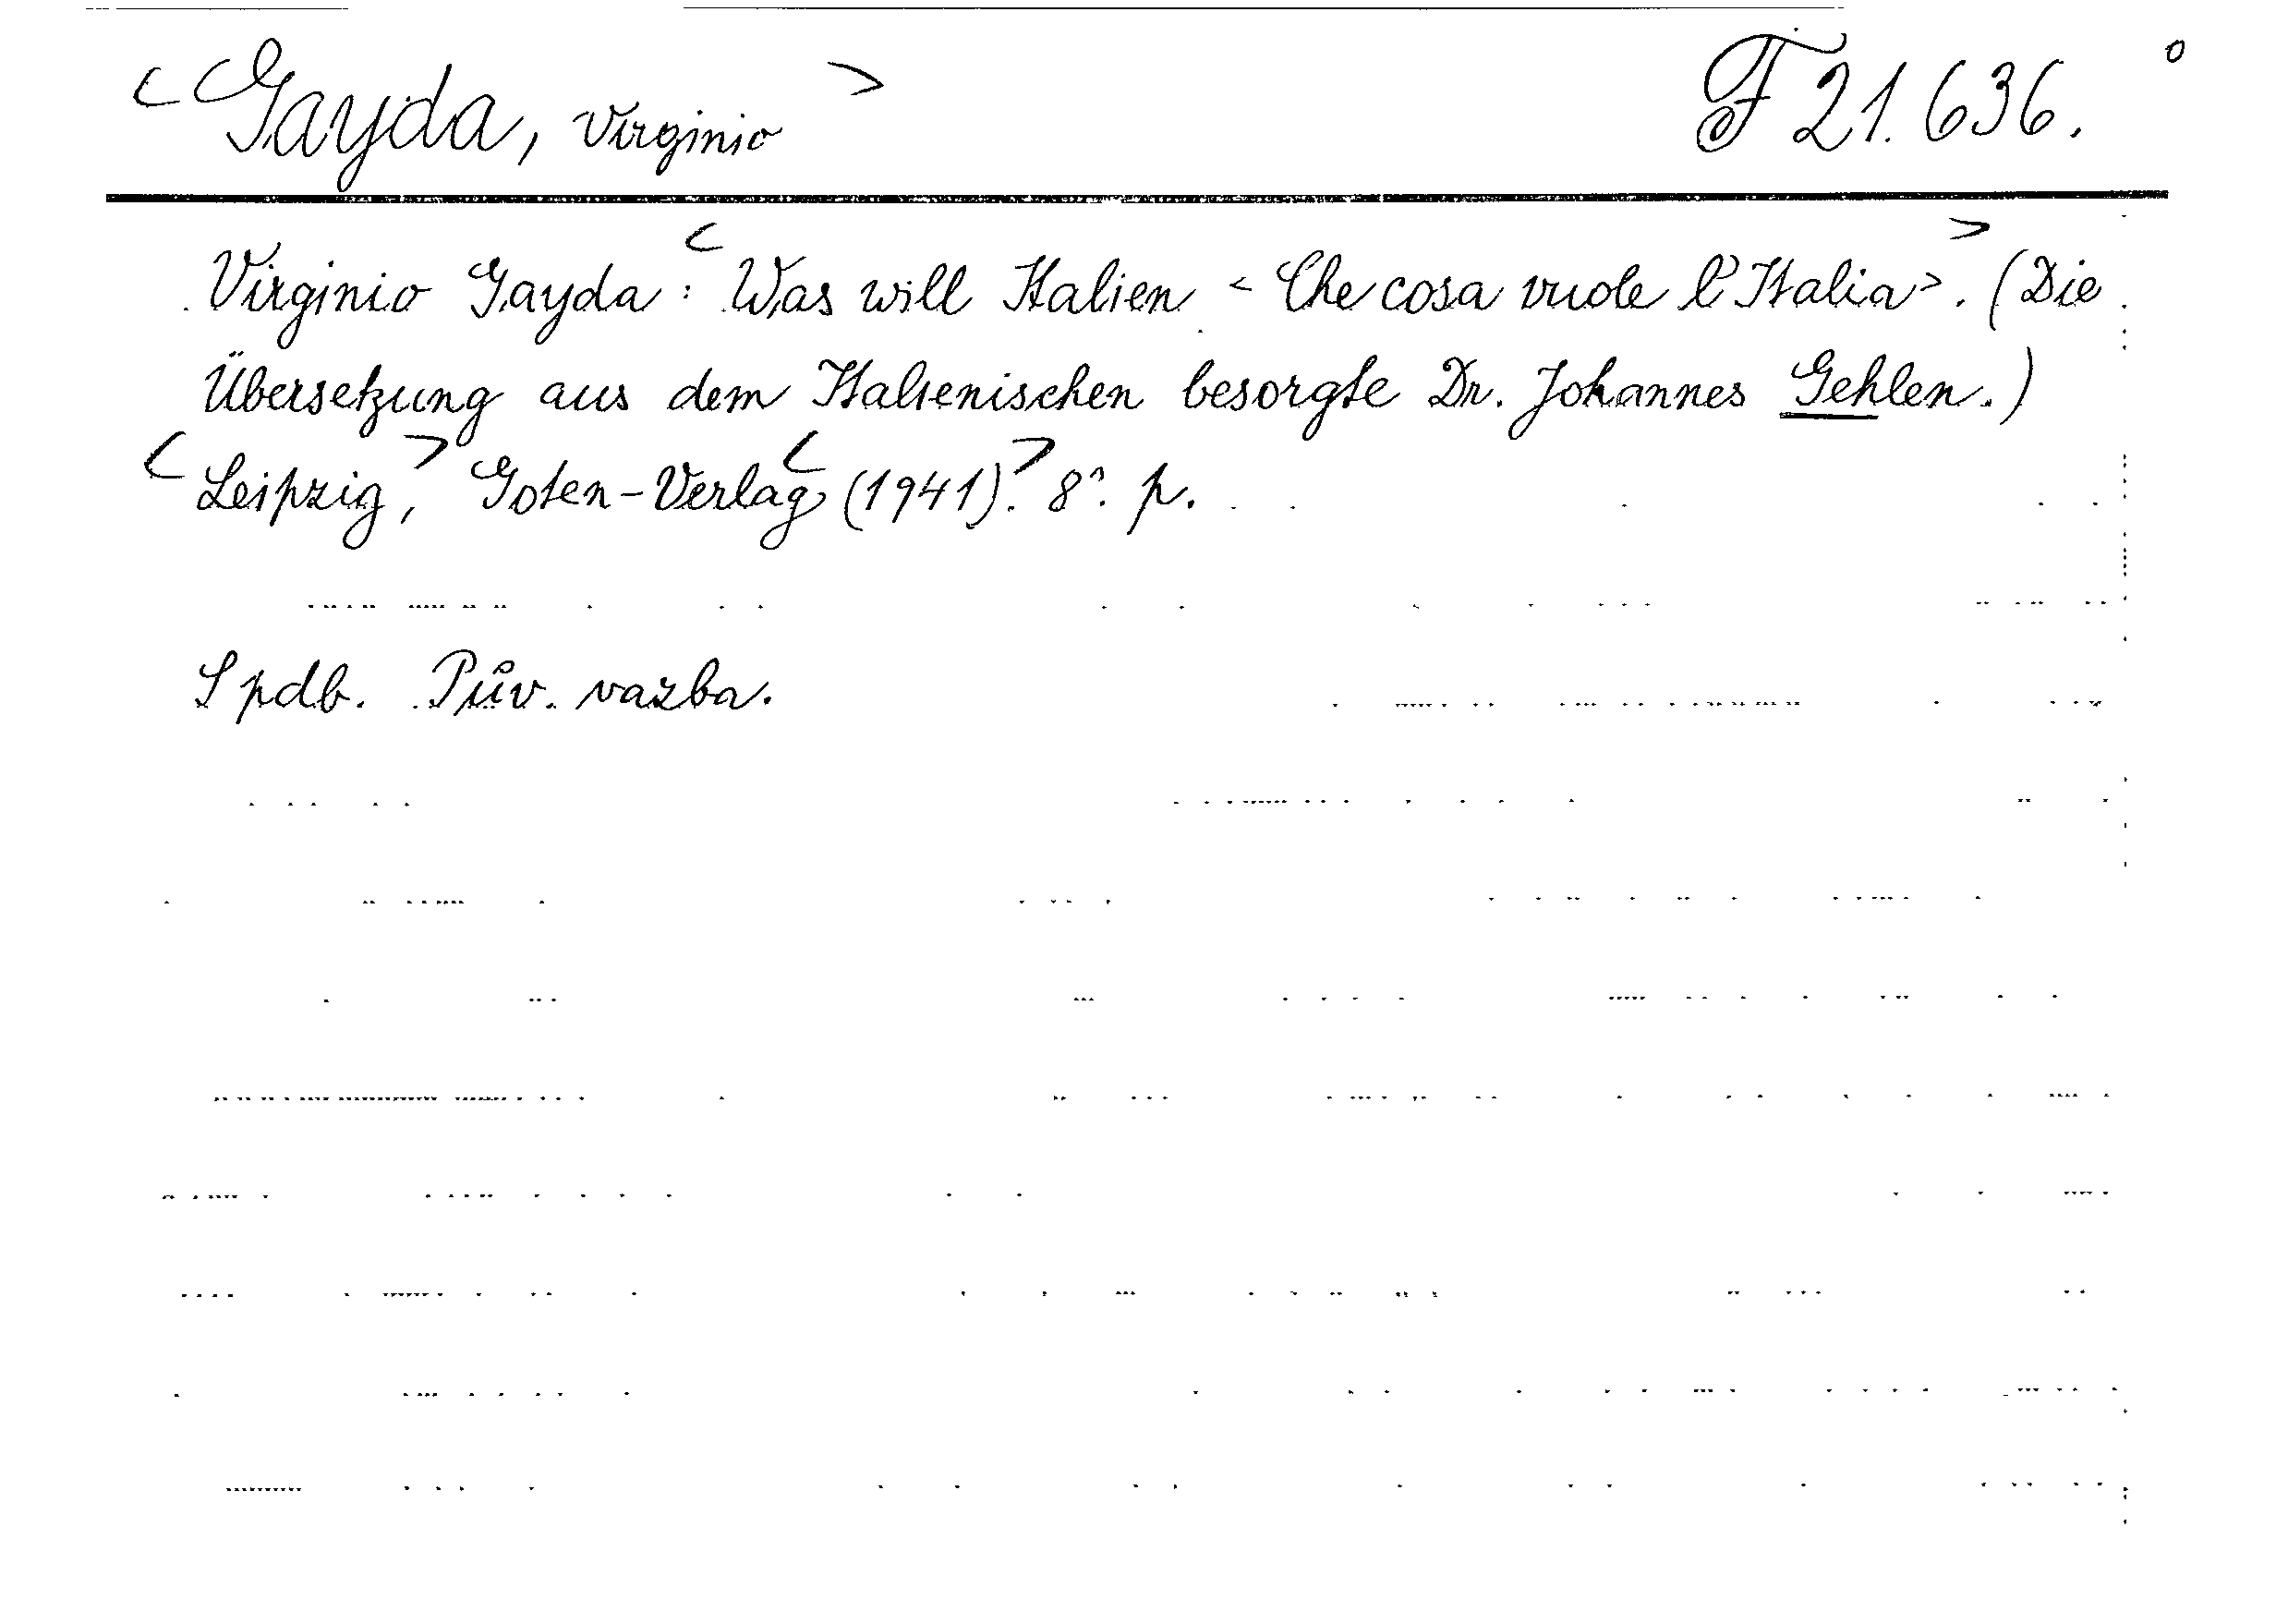 <Gayda, Virginio> F 21.636. o
Virginio Gayda: <Was will Italien <Che cosa vuole l'Italia>.> (Die
Übersetzung aus dem Italienischen besorgte Dr. Johannes Gehlen.)
<Leipzig,> Goten-Verlag <(1941).> 8°. p.
Spdb. Pův. vazba.